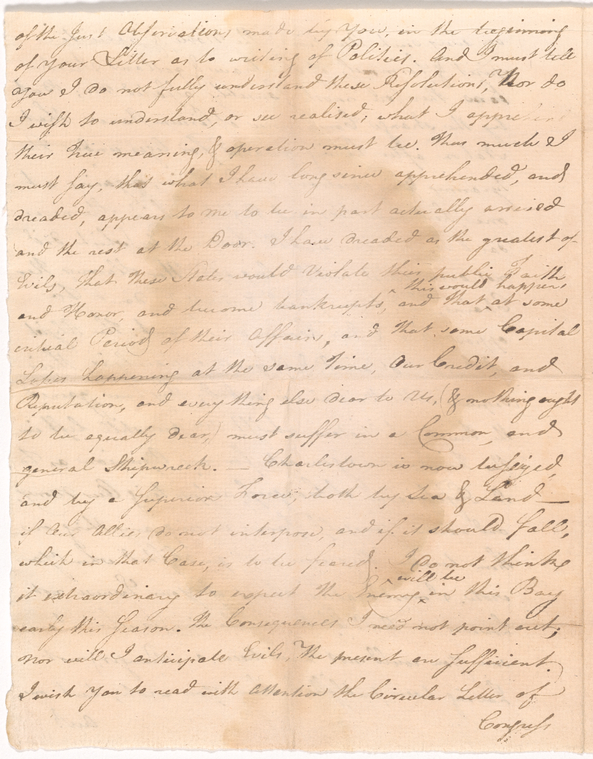 of the Just Observations made by You, in the beginning
of Your Letter as to writing of Politics. And I must tell
you I do not fully understand these Resolutions, Nor do
I wish to understand, or see realised, what I apprehend
their true meaning, & operation must be. Thus much I
must say, that what I have long since apprehended, and
dreaded, appears to me to be, in part actually arrived
and the rest at the Door. I have dreaded as the greatest of
Evils, that these States would violate their public Faith
and Honor, and become bankrupts, and that ^this would happen at some
critical Period of their Affairs, and that some Capital
Losses happening at the same time, Our Credit, and
Reputation, and everything else dear to Us, (& nothing ought
to be equally dear) must suffer in a Common, and
general Shipwreck. — Charlestown is now besieged,
and by a Superior Force, both by Sea & Land —
if our Allies do not interpose, and if it should fall,
which in that Case, is to be feared. I do not think
it extraordinary to expect the Enemy ^will be in this Bay
early this Season. The Consequences I need not point out,
nor will I anticipate Evils, The present are sufficient.
I wish You to read with Attention the Circular Letter of
Congress